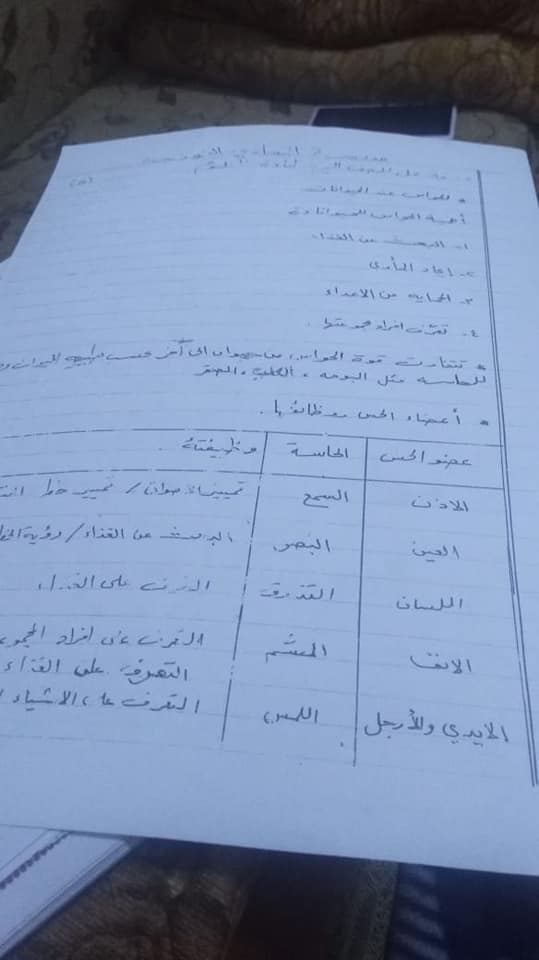 (٥)
* الحواس عند الحيوانات
أهمية الحواس للحيوانات
١- البحث عن الغذاء
٢- إيجاد المأوى
٣- الحماية من الاعداء
٤- تعرف افراد مجموعتها
* تتفاوت قوة الحواس من حيوان الى آخر حسب الحيوان
للحاسة مثل البومة ، الكلب ، الصقر
* أعضاء الحس ووظائفها.
عضو الحس الحاسة وظيفته
الاذن السمع تمييز الاصوات / تمييز خط
العين البصر البحث عن الغذاء / رؤية
اللسان التذوق التعرف على الغذاء
الانف الشم التعرف على افراد
التعرف على الغذاء
الايدي والأرجل اللمس التعرف على الاشياء